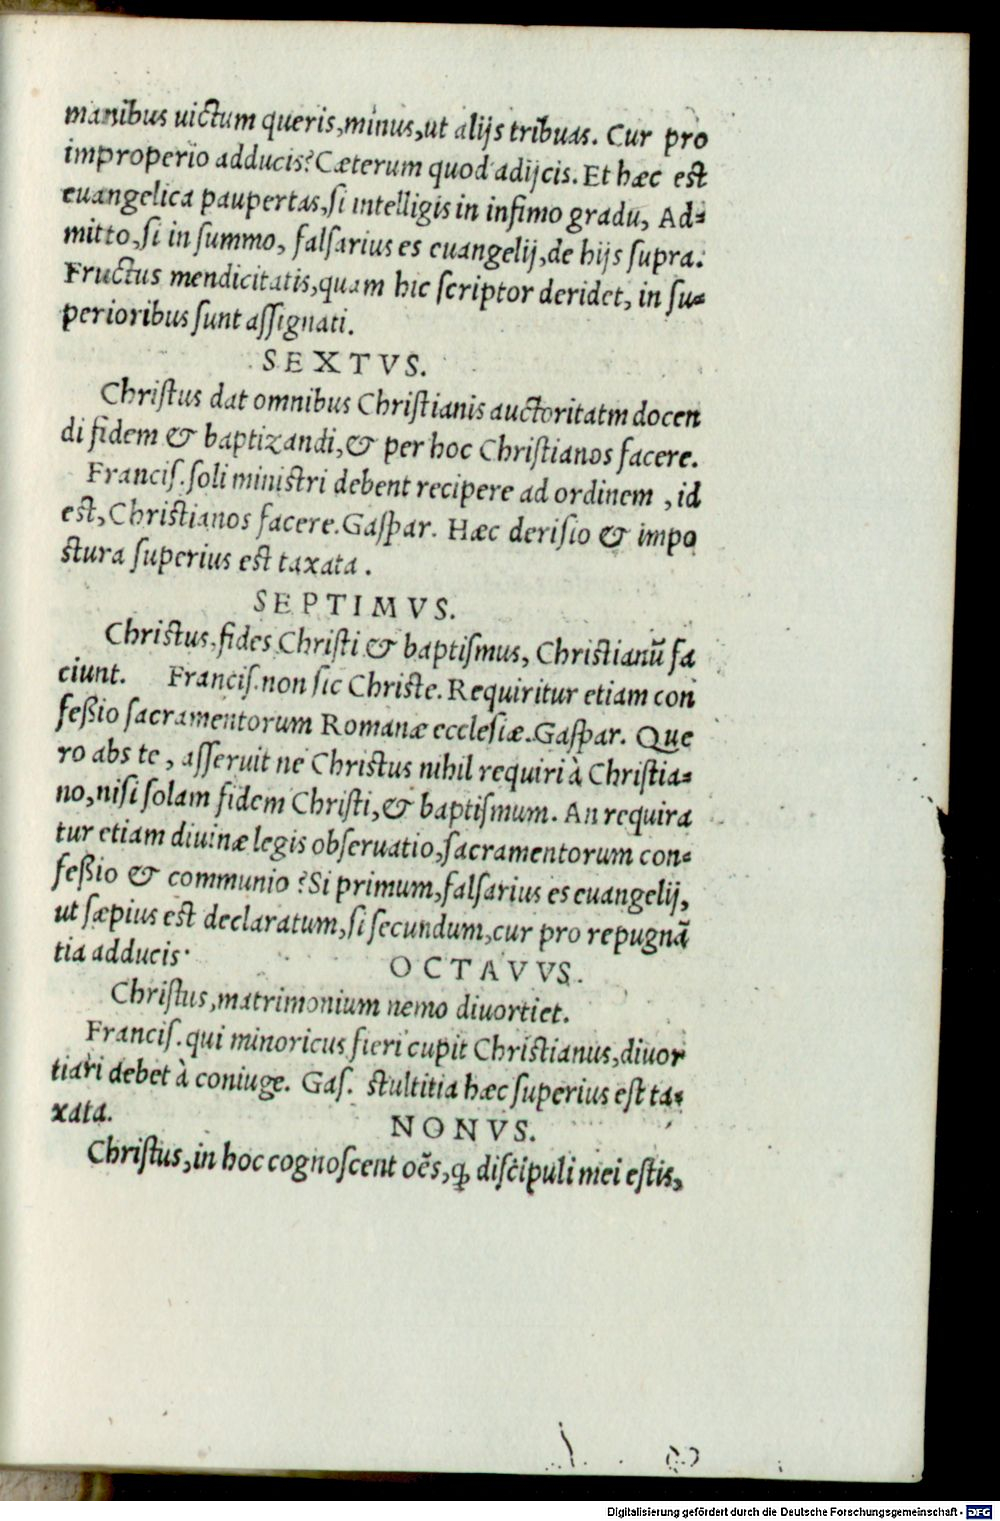 manibus uictum queris, minus, ut alijs tribuas. Cur pro
improperio adducis? Cæterum quod adijcis. Et hæc est
euangelica paupertas, si intelligis in infimo gradu, Ad-
mitto, si in summo, falsarius es euangelij, de hijs supra.
Fructus mendicitatis, quam hic scriptor deridet, in su-
perioribus sunt assignati.
SEXTVS.
Christus dat omnibus Christianis auctoritatm docen
di fidem & baptizandi, & per hoc Christianos facere.
Francis. soli ministri debent recipere ad ordinem, id
est, Christianos facere. Gaspar. Hæc derisio & impo
stura superius est taxata.
SEPTIMVS.
Christus, fides Christi & baptismus, Christianũ fa
ciunt. Francis. non sic Christe. Requiritur etiam con
feßio sacramentorum Romanæ ecclesiæ. Gaspar. Que
ro abs te, asseruit ne Christus nihil requiri à Christia-
no, nisi solam fidem Christi, & baptismum. An requira
tur etiam diuinæ legis obseruatio, sacramentorum con-
feßio & communio? Si primum, falsarius es euangelij,
ut sæpius est declaratum, si secundum, cur pro repugnã
tia adducis.
OCTAVVS.
Christus, matrimonium nemo diuortiet.
Francis. qui minoricus fieri cupit Christianus, diuor
tiari debet à coniuge. Gas. stultitia hæc superius est ta-
xata.
NONVS.
Christus, in hoc cognoscent oẽs, ꝙ discipuli mei estis,
Digitalisierung gefördert durch die Deutsche Forschungsgemeinschaft - DFG